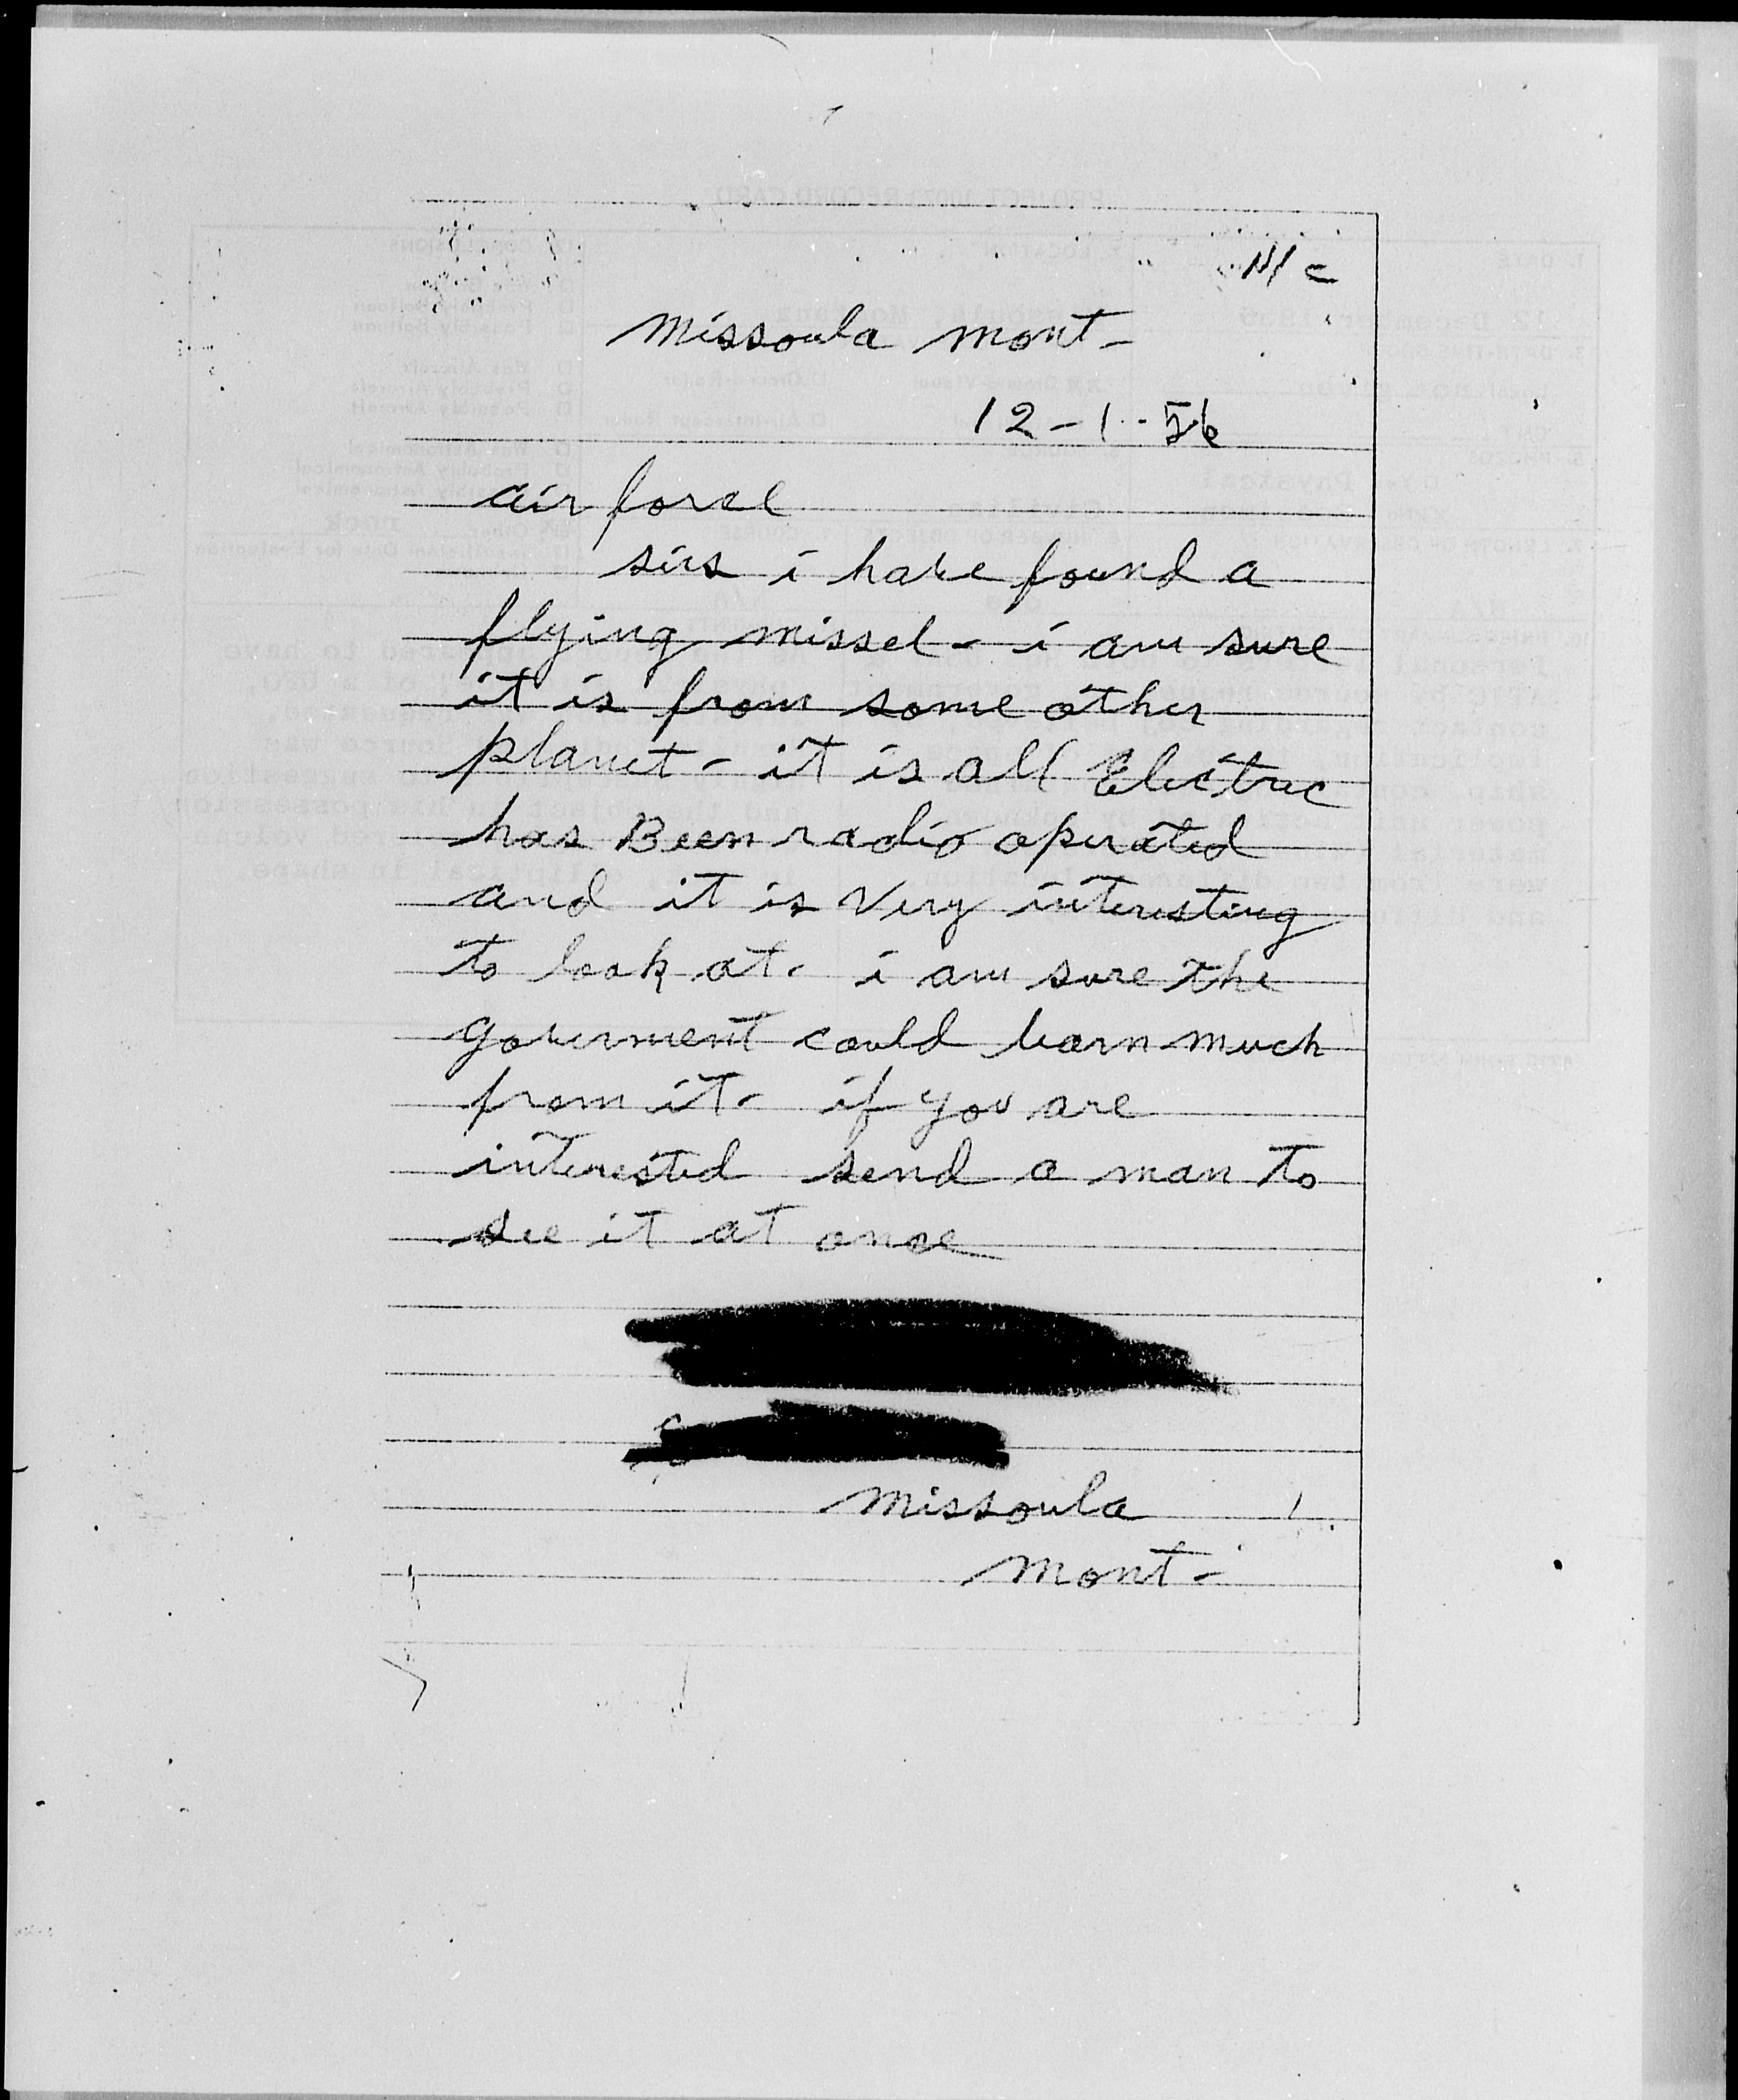 N/C
missoula mont-
12-1-56
air force
sirs i have found a
flying missel- i am sure
it is from some other
planet- it is all Electric
has Been radio operated
and it is very interesting
to look at. i am sure the
goverment could learn much
from it- if you are
interested send a man to
see it at once
missoula
mont-